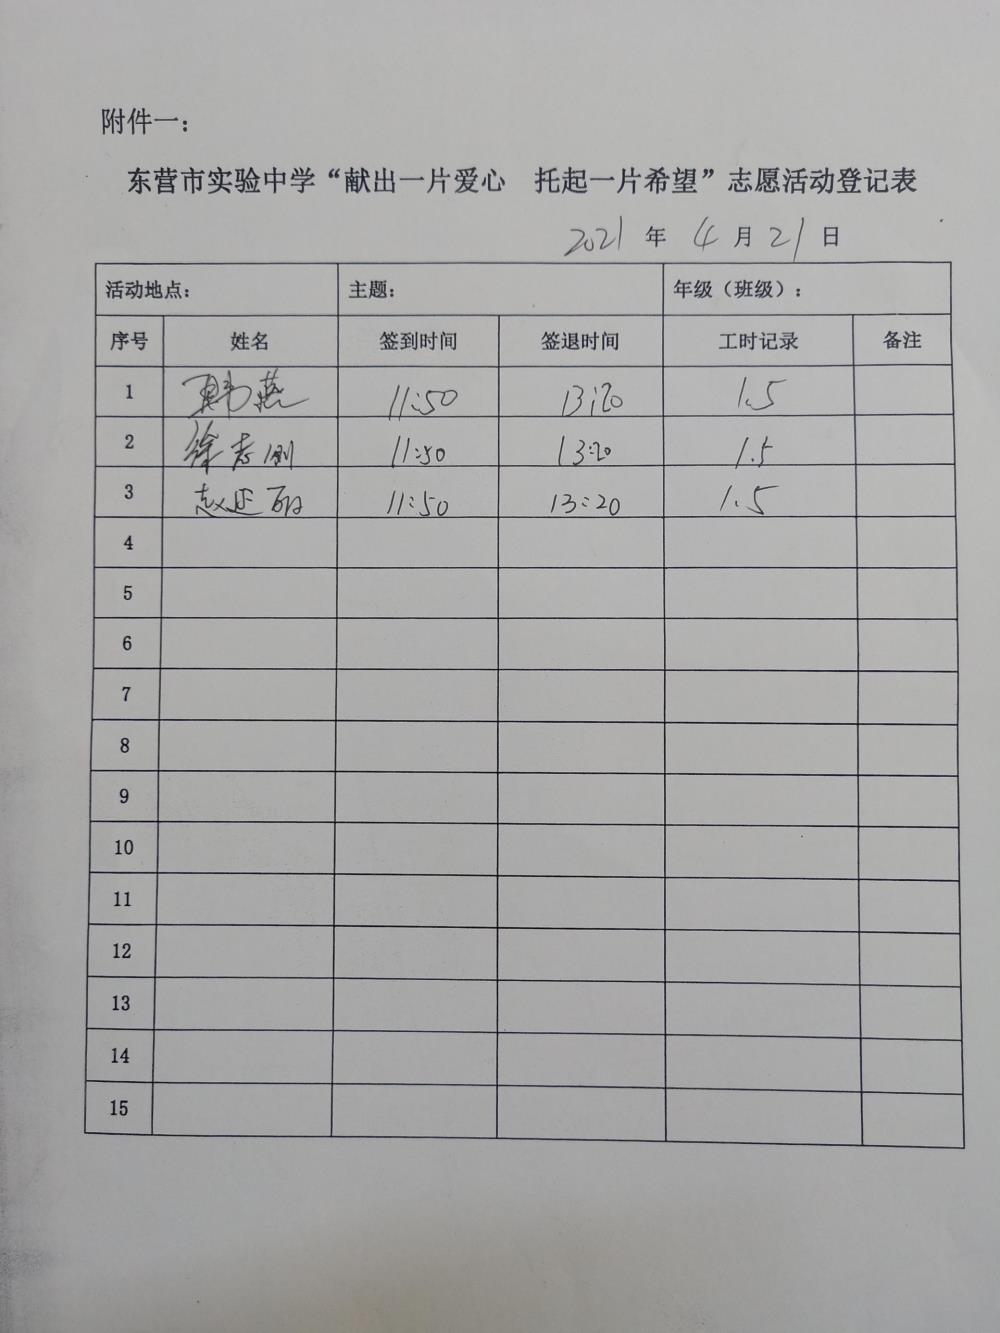 附件一：
东营市实验中学“献出一片爱心 托起一片希望”志愿活动登记表
2021 年 4 月 21 日
活动地点： 主题： 年级（班级）：
序号 姓名 签到时间 签退时间 工时记录 备注
1 韩燕 11:50 13:20 1.5
2 徐志刚 11:50 13:20 1.5
3 赵延 11:50 13:20 1.5
4
5
6
7
8
9
10
11
12
13
14
15